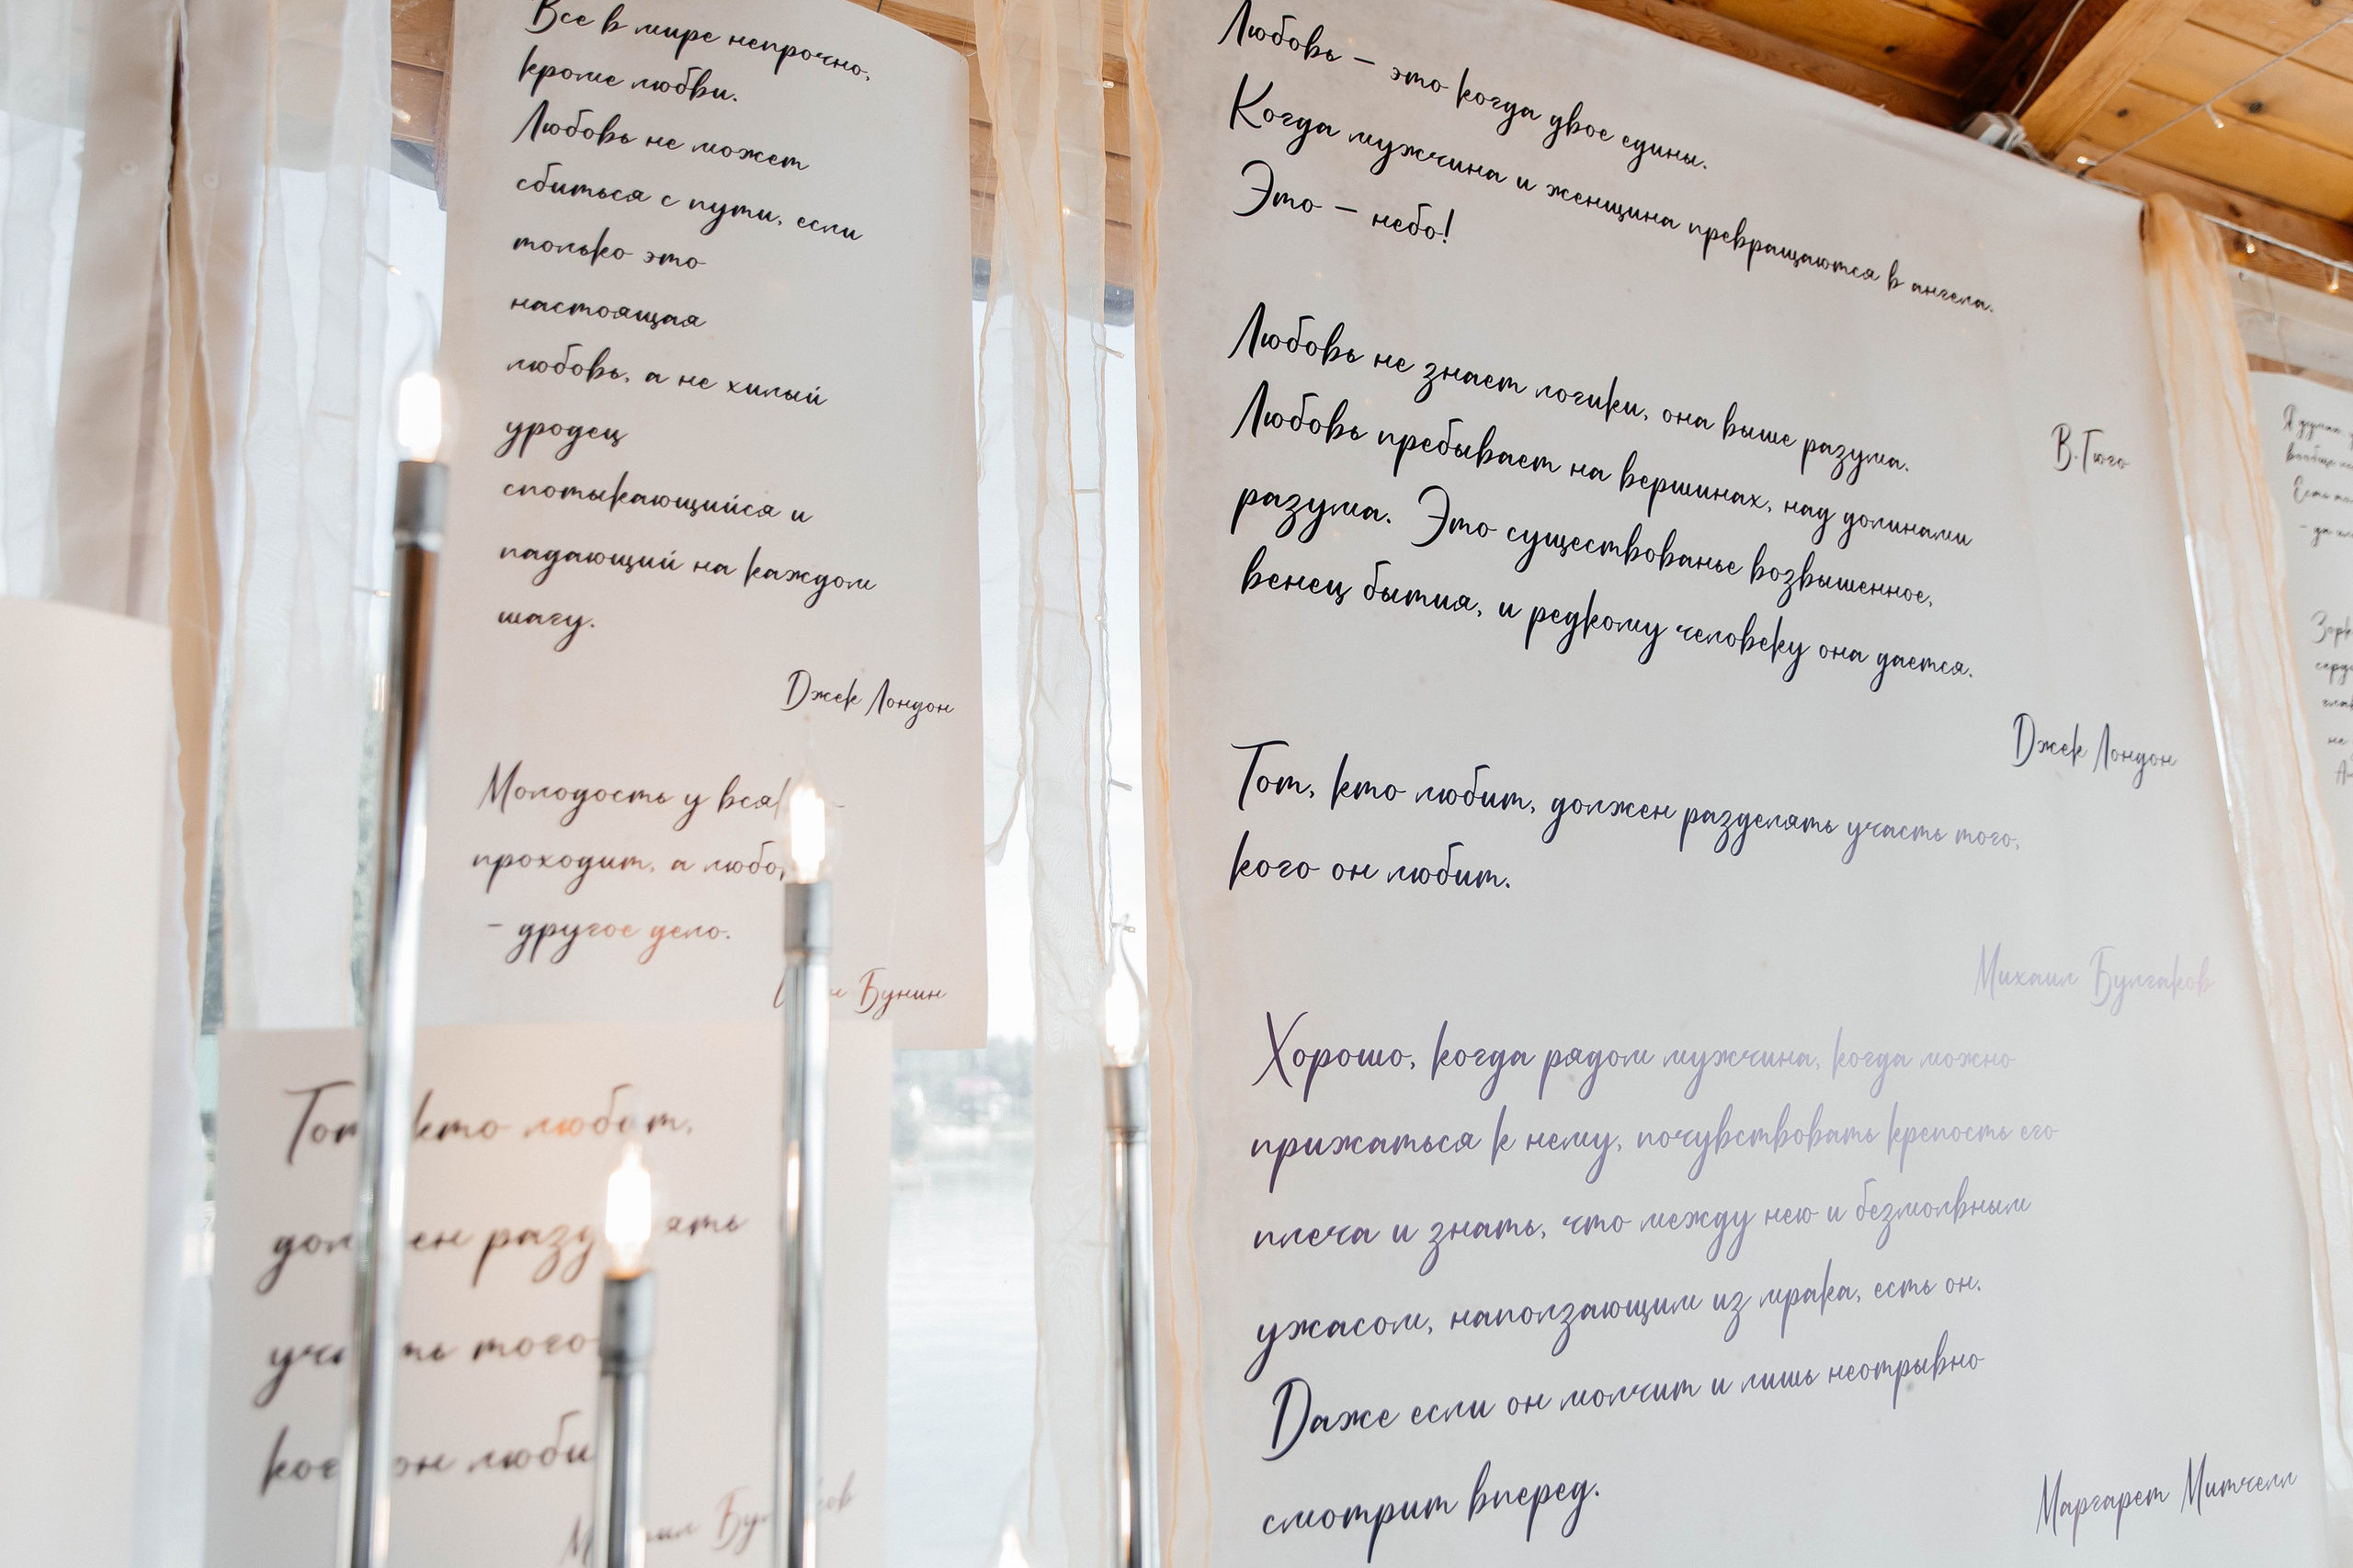 Все в мире непрочно,
кроме любви.
Любовь не может
сбиться с пути, если
только это
настоящая
любовь, а не хилый
уродец
спотыкающийся и
падающий на каждом
шагу.
Джек Лондон
Молодость у
проходит, а
- другое дело.
Бунин
кто любит,
того
он
Любовь – это когда двое едины.
Когда мужчина и женщина превращаются в ангела.
Это – небо!
В.Гюго
Любовь не знает логики, она выше разума.
Любовь пребывает на вершинах, над долинами
разума. Это существованье возвышенное,
венец бытия, и редкому человеку она дается.
Джек Лондон
Тот, кто любит, должен разделять участь того,
кого он любит.
Михаил Булгаков
Хорошо, когда рядом мужчина, когда можно
прижаться к нему, почувствовать крепость его
плеча и знать, что между нею и безмолвным
ужасом, наползающим из мрака, есть он.
Даже если он молчит и лишь неотрывно
смотрит вперед.
Маргарет Митчелл